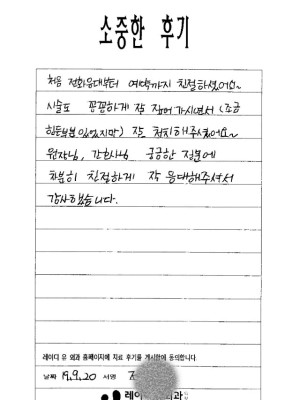 소중한 후기
처음 전화응대부터 예약까지 친절하셨어요~
시술도 꼼꼼하게 잘 잡아가시면서 (조금
힘든부분 있었지만) 잘 처치해주셨어요~
원장님, 간호사님 궁금한 질문에
차분히 친절하게 잘 응대해주셔서
감사했습니다.
레이디 유 외과 홈페이지에 치료 후기를 게시함에 동의합니다.
날짜 19.9.20 서명